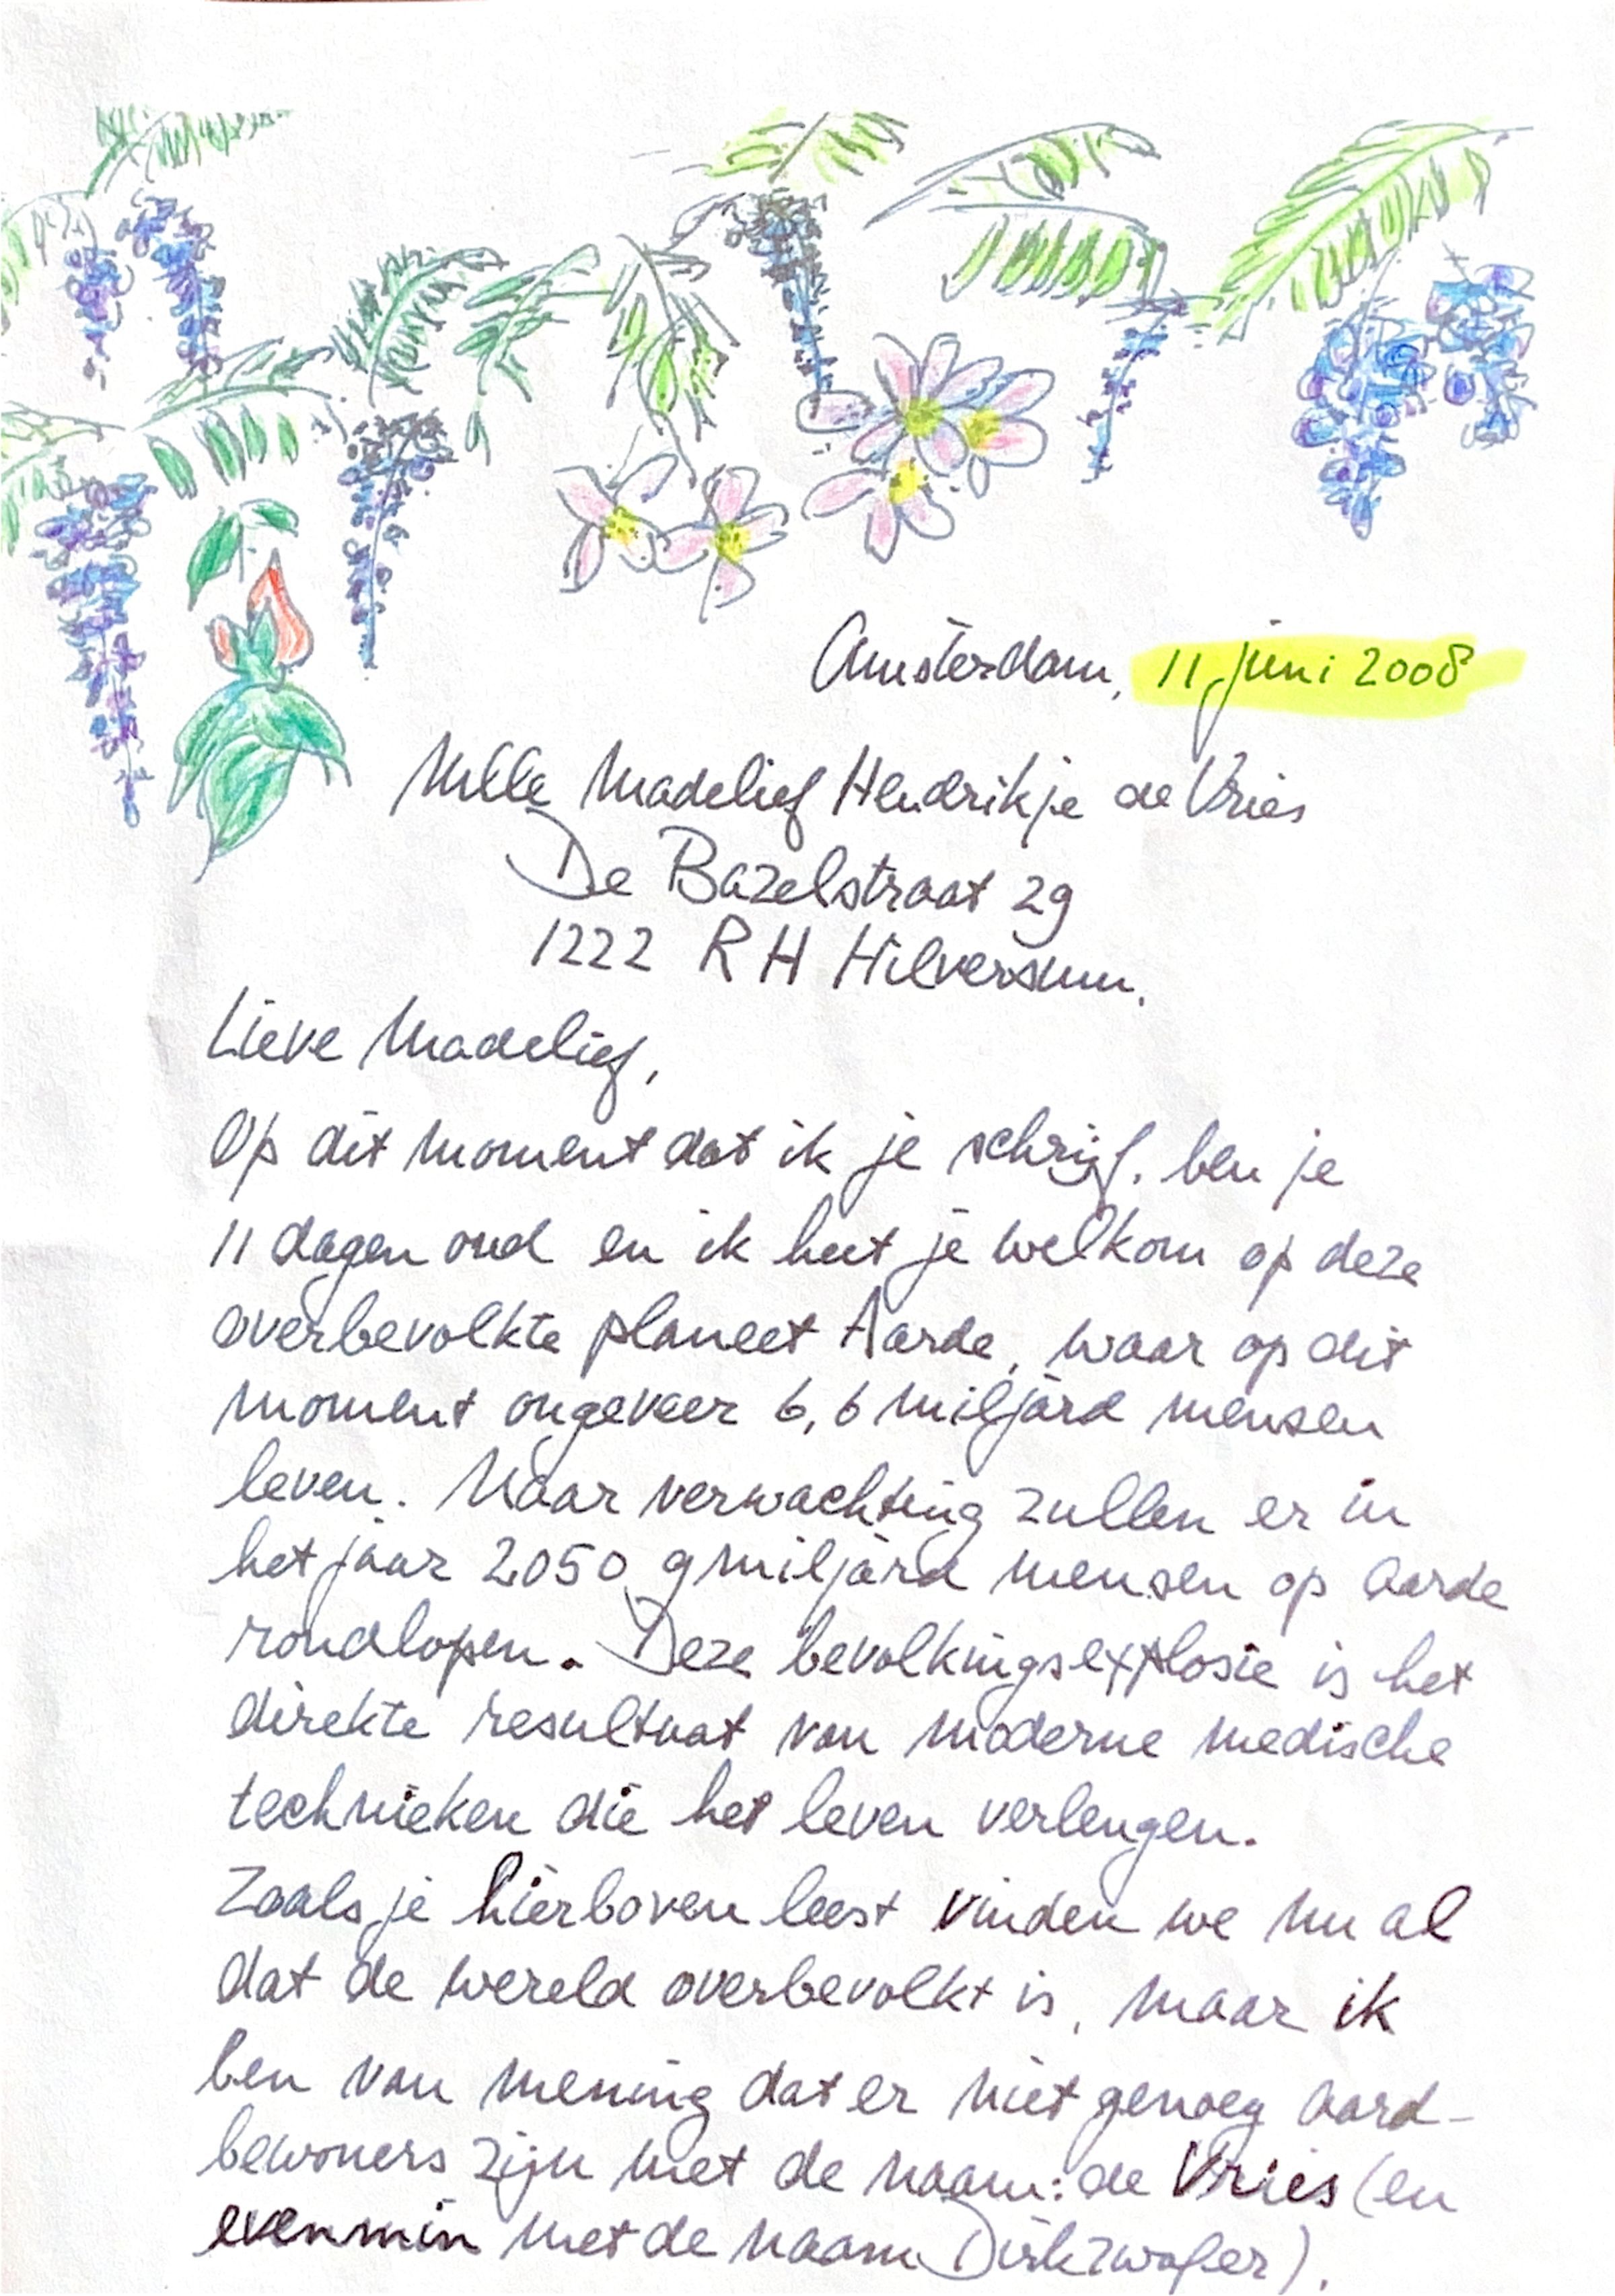 Amsterdam, 11 juni 2008
Mlle Madelief Hendrikje de Vries
De Bazelstraat 29
1222 RH Hilversum.
Lieve Madelief,
Op dit moment dat ik je schrijf, ben je
11 dagen oud en ik heet je welkom op deze
overbevolkte planeet Aarde, waar op dit
moment ongeveer 6,6 miljard mensen
leven. Naar verwachting zullen er in
het jaar 2050 9 miljard mensen op aarde
rondlopen. Deze bevolkingsexplosie is het
direkte resultaat van moderne medische
technieken die het leven verlengen.
Zoals je hierboven leest vinden we nu al
dat de wereld overbevolkt is, maar ik
ben van mening dat er niet genoeg aard-
bewoners zijn met de naam: de Vries (en
evenmin met de naam Dirkzwager).